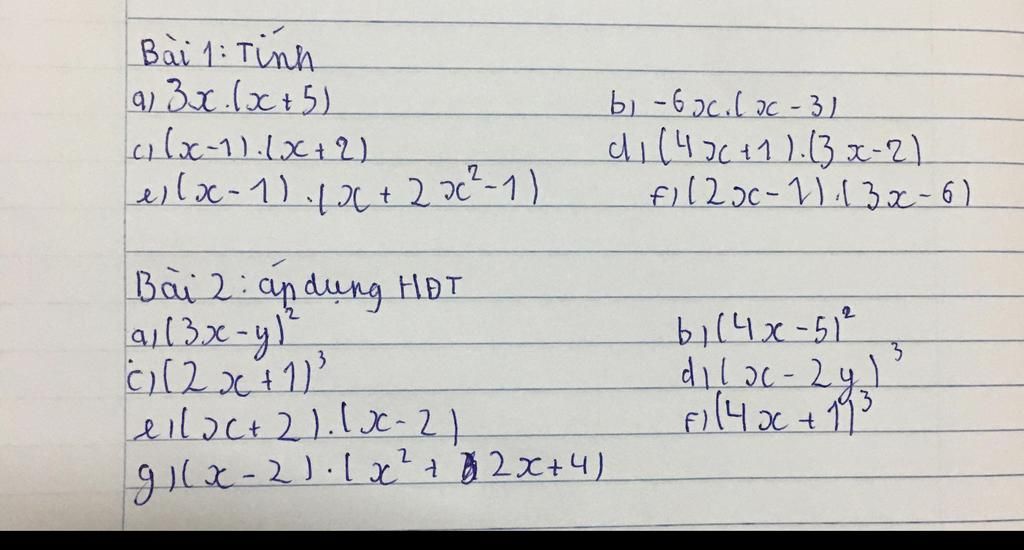 Bài 1: Tính
a) 3x.(x+5) b) -6x.(x-3)
c) (x-1).(x+2) d) (4x+1).(3x-2)
e) (x-1).(x+2x²-1) f) (2x-1).(3x-6)
Bài 2: áp dụng HĐT
a) (3x-y)² b) (4x-5)²
c) (2x+1)³ d) (x-2y)³
e) (x+2).(x-2) f) (4x+1)³
g) (x-2).(x²+2x+4)